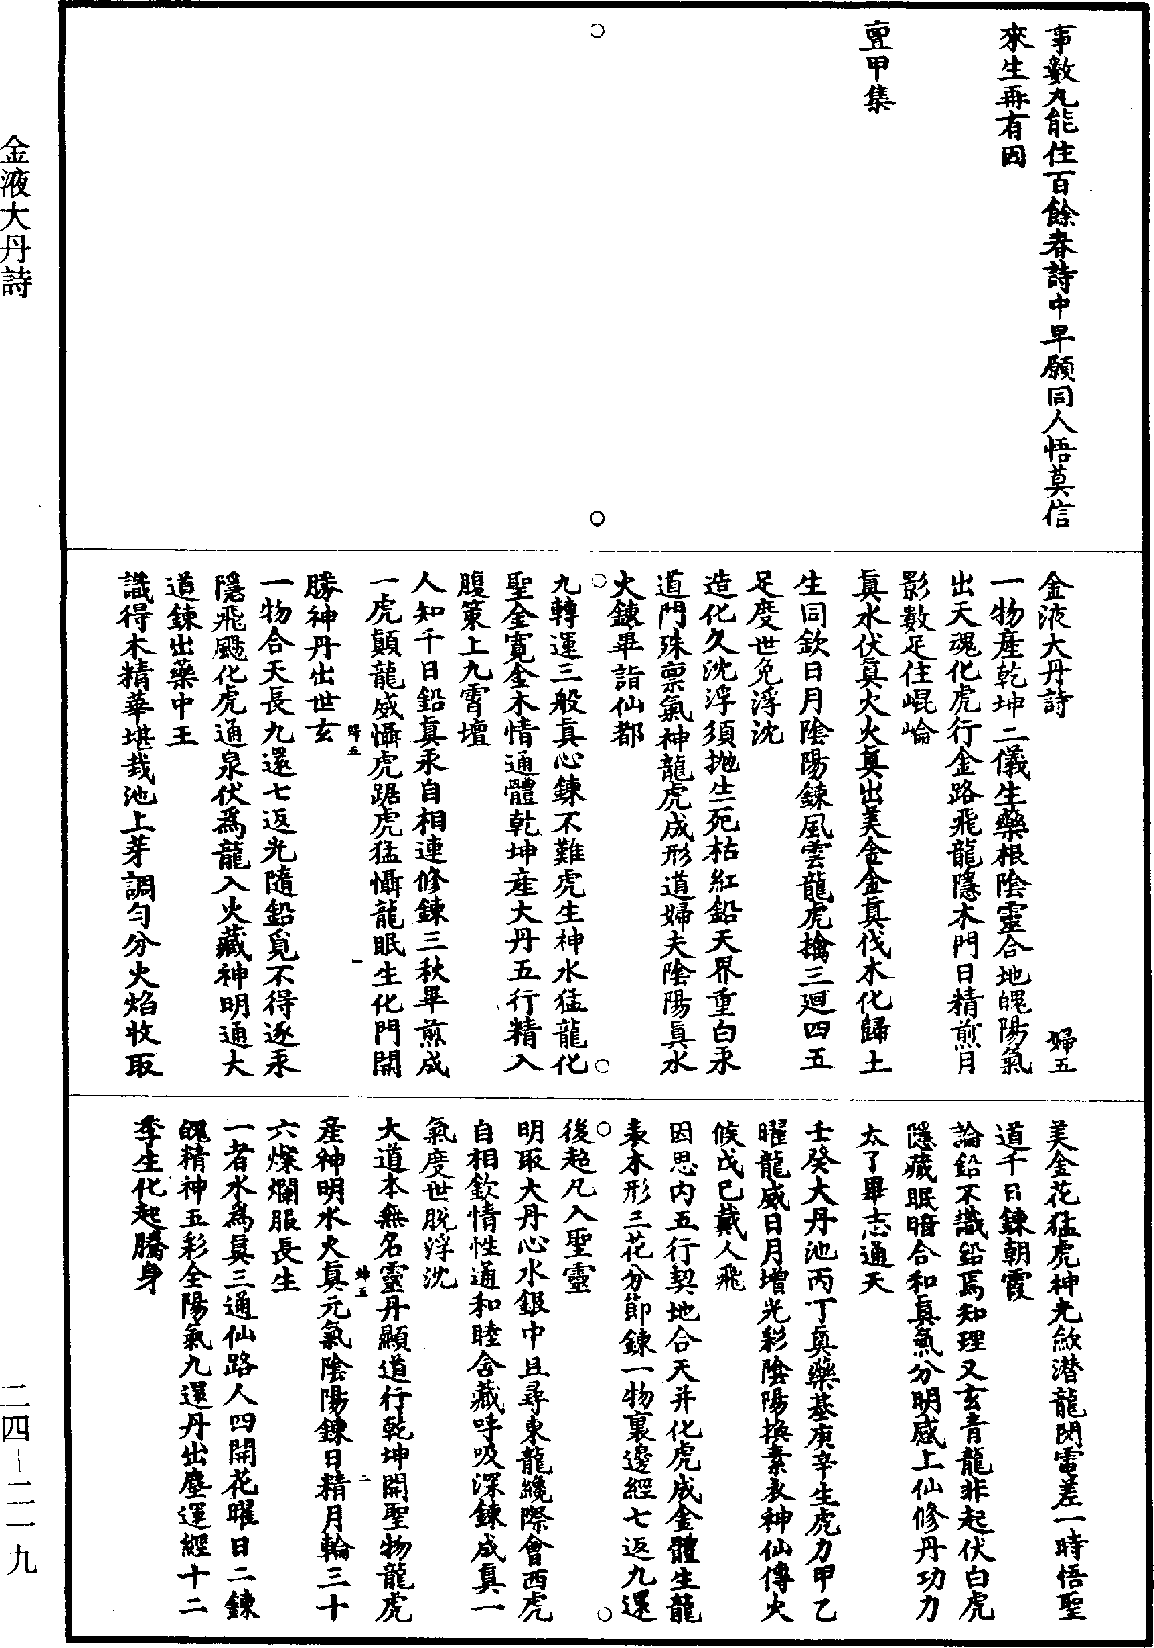 事數九能住百餘春詩中早願同人悟莫信
來生再有因
亶甲集
金液大丹詩 婦五
一物產乾坤二儀生藥根陰靈合地魄陽氣
出天魂化虎行金路飛龍隱木門日精煎月
影數足住崐崘
眞水伏眞火火眞出美金金眞伐木化歸土
生同欽日月陰陽鍊風雲龍虎擒三迴四五
足度世免浮沈
造化久沈浮須拋生死枯紅鉛天界重白汞
道門殊禀氣神龍虎成形道婦夫陰陽眞水
火鍊畢詣仙都
九轉運三般眞心鍊不難虎生神水猛龍化
聖金寬金木情通體乾坤產大丹五行精入
腹策上九霄壇
人知千日鉛眞汞自相連修鍊三秋畢煎成
一虎顛龍威懾虎踞虎猛懾龍眠生化門開
勝神丹出世玄
婦五
一
一物合天長九還七返光隨鉛覓不得逐汞
隱飛颺化虎通泉伏爲龍入火藏神明通大
道鍊出藥中王
識得木精華堪栽池上芽調勻分火焰收取
美金花猛虎神光斂潛龍閃電差一時悟聖
道千日鍊朝霞
論鉛不識鉛焉知理又玄青龍非起伏白虎
隱藏眠暗合和眞氣分明感上仙修丹功力
太了畢志通天
壬癸大丹池丙丁眞藥基庚辛生虎力甲乙
曜龍威日月增光彩陰陽換素衣神仙傳火
候戊己戴人飛
因思内五行契地合天并化虎成金體生龍
表木形三花分節鍊一物裏邊經七返九還
後超凡入聖靈
明取大丹心水銀中且尋東龍纔際會西虎
自相欽情性通和睦含藏呼吸深鍊成眞一
氣度世脫浮沈
大道本無名靈丹顯道行乾坤開聖物龍虎
產神明水火眞元氣陰陽鍊日精月輪三十
六燦爛服長生
婦五
二
一者水爲眞三通仙路人四開花曜日二鍊
魄精神五彩全陽氣九還丹出塵運經十二
季生化起騰身
金液大丹詩
二四-二一九